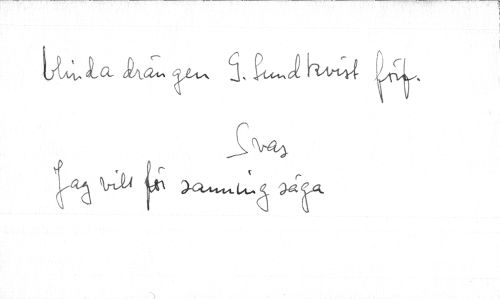 blinda drängen G. Sundkvist förf.
Svar
Jag vill för sanning säga